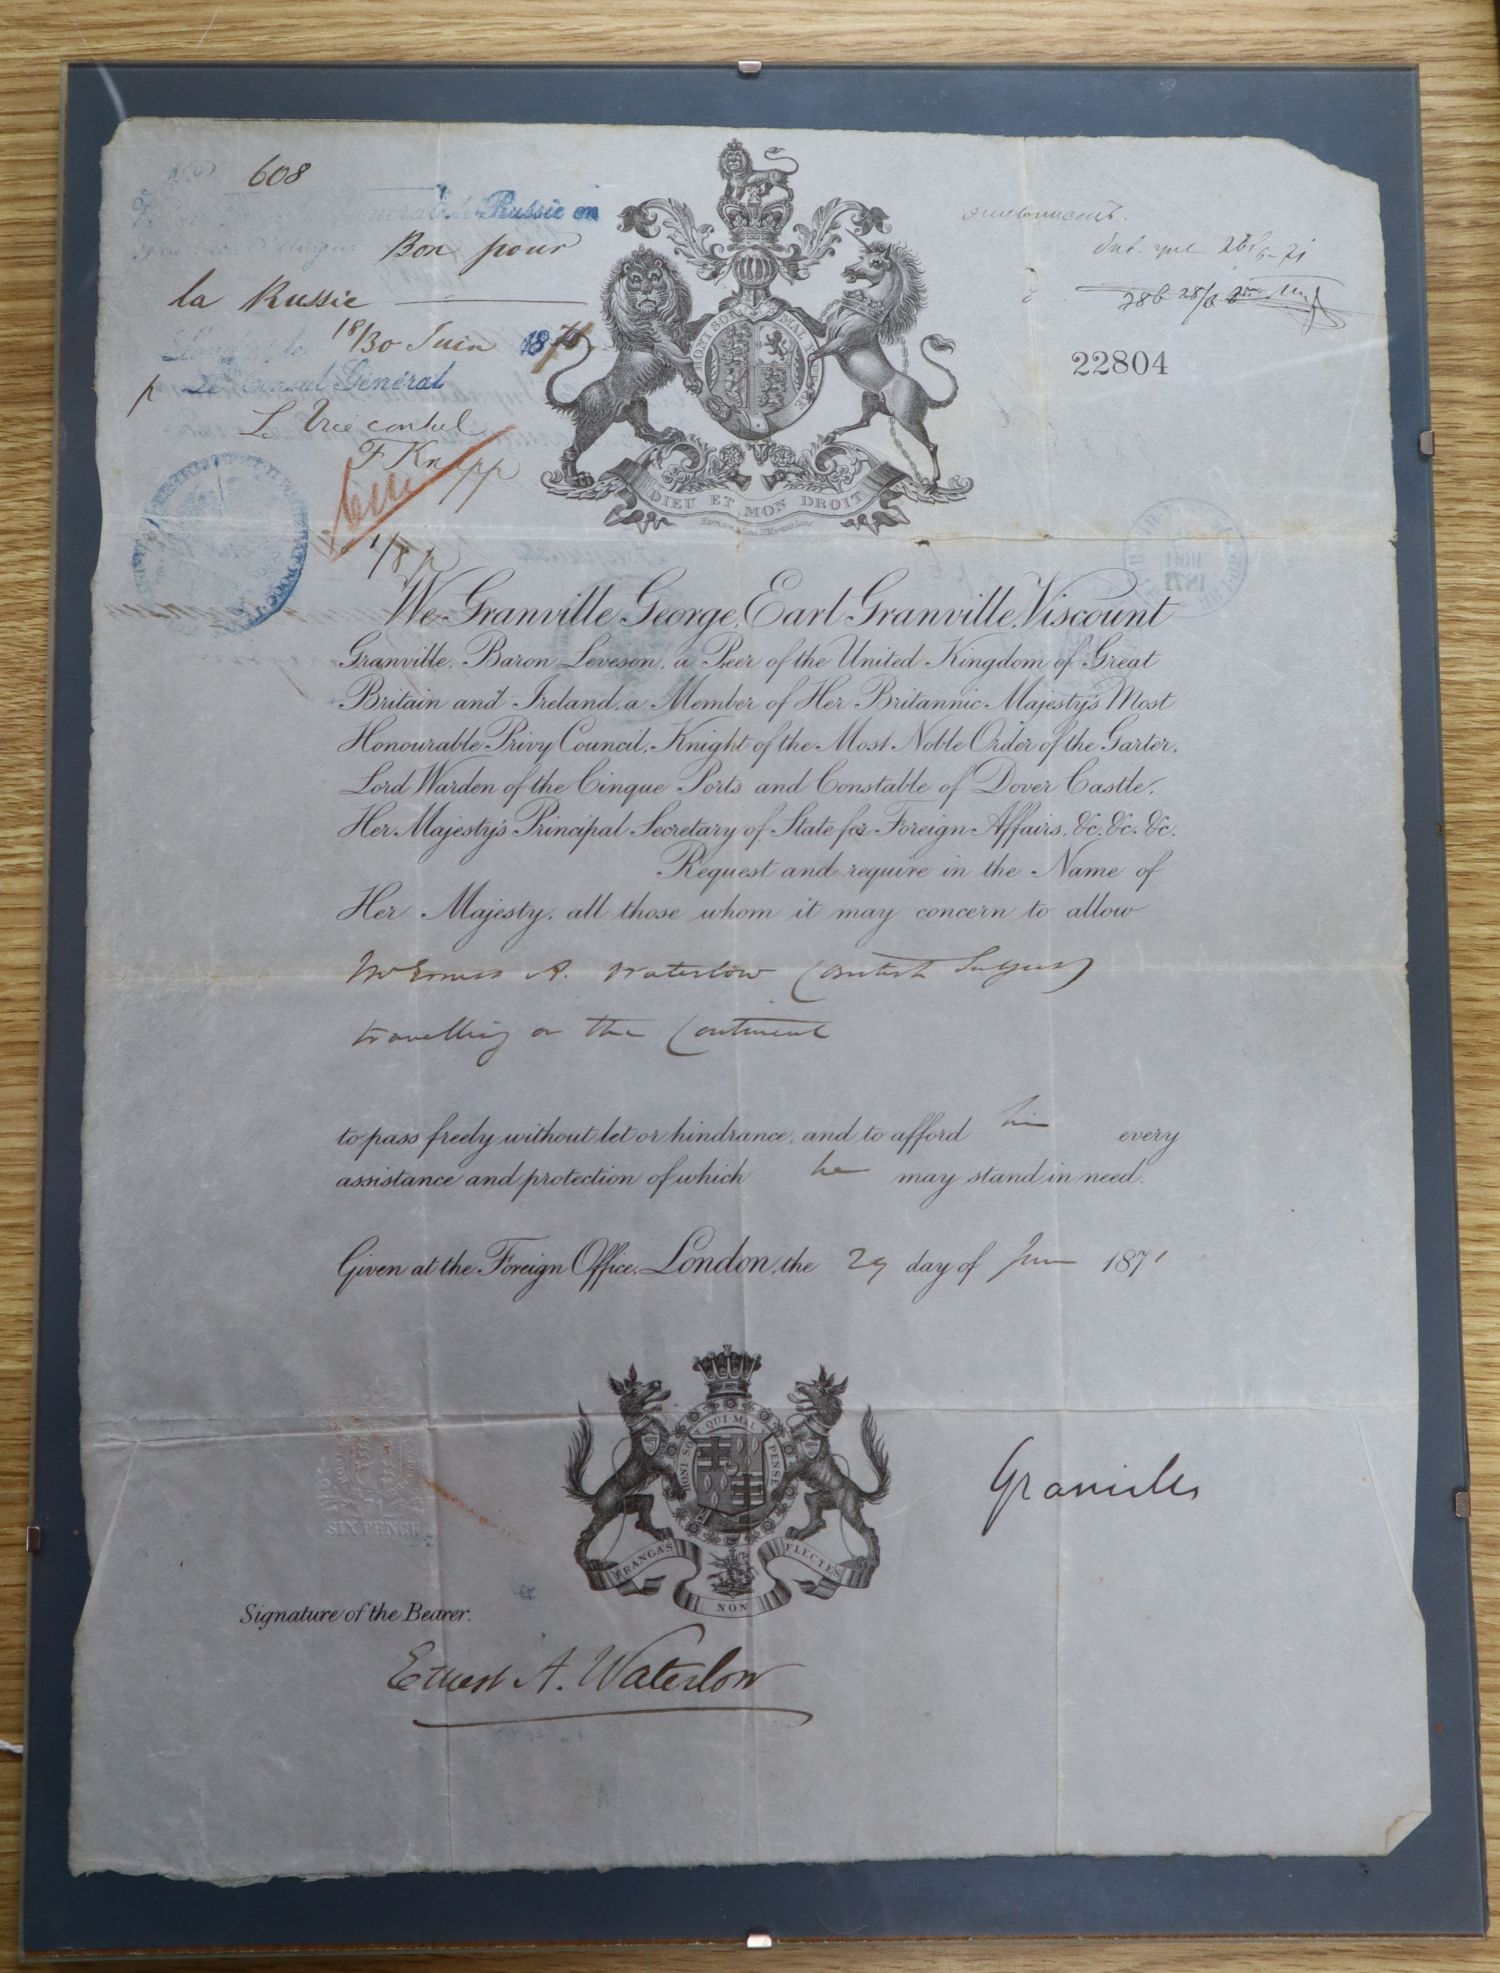 608
Russie en
Bon pour
la Russie
18/30 Juin 1871
p Le Consul Général
Le Vice consul
F Knapp
22804
HONI SOIT QUI MAL Y PENSE
DIEU ET MON DROIT
We Granville George, Earl Granville, Viscount
Granville, Baron Leveson, a Peer of the United Kingdom of Great
Britain and Ireland, a Member of Her Britannic Majesty's Most
Honourable Privy Council, Knight of the Most Noble Order of the Garter,
Lord Warden of the Cinque Ports and Constable of Dover Castle,
Her Majesty's Principal Secretary of State for Foreign Affairs, &c. &c. &c.
Request and require in the Name of
Her Majesty, all those whom it may concern to allow
Mr Ernest A. Waterlow (British Subject)
travelling on the Continent
to pass freely without let or hindrance, and to afford him every
assistance and protection of which he may stand in need.
Given at the Foreign Office, London, the 29 day of June 1871
HONI SOIT QUI MAL Y PENSE
FRANGAS NON FLECTES
Granville
71
SIX PENCE
Signature of the Bearer.
Ernest A. Waterlow